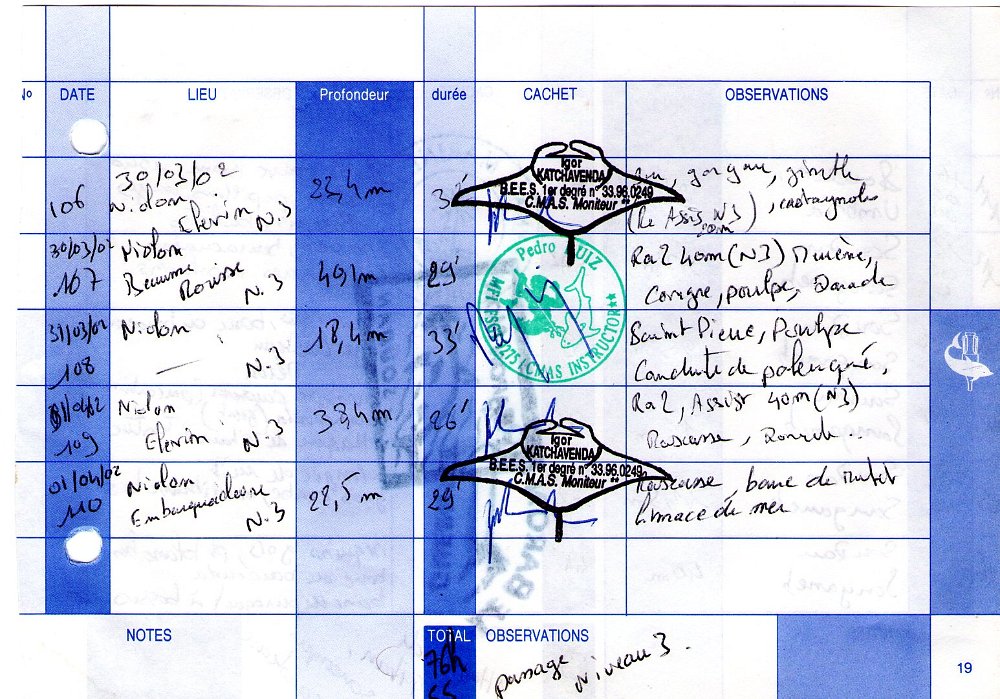 No DATE LIEU Profondeur durée CACHET OBSERVATIONS
106
30/03/02
Niolon
Elevin N.3
23,4m
gorgone, girelle
(Re Assis N3), castagnoles
20m
Igor
KATCHAVENDA
B.E.E.S. 1er degré n° 33.96.0249
C.M.A.S. Moniteur **
30/03/02
107
Niolon
Rousse
N.3
49,1m
29'
Ra2 40m (N3) Murène,
Congre, poulpe, Daurade
Pedro RUIZ
CMAS INSTRUCTOR **
31/03/02
108
Niolon
N.3
18,4m
33'
Saint Pierre, Poulpe
Conduite de palanquée,
109
Niolon
Elevin N.3
26'
Ra2, Assist 40m (N3)
Rascasse,
01/04/02
110
Niolon
Embarquadère
N.3
22,5m
29'
Rascasse, banc de
limace de mer
Igor
KATCHAVENDA
B.E.E.S. 1er degré n° 33.96.0249
C.M.A.S. Moniteur **
NOTES TOTAL OBSERVATIONS
76h
passage Niveau 3.
19